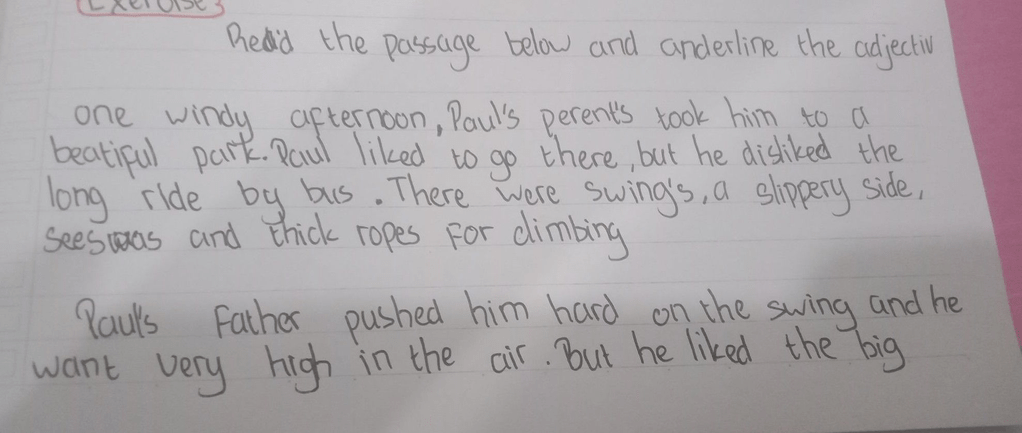 Exercise 3
Read the passage below and anderline the adjectiv
one windy afternoon, Paul's perent's took him to a
beatiful park. Paul liked to go there, but he disliked the
long ride by bus. There were swing's, a slippery side,
seeswas and thick ropes for climbing
Paul's Father pushed him hard on the swing and he
want very high in the air. But he liked the big